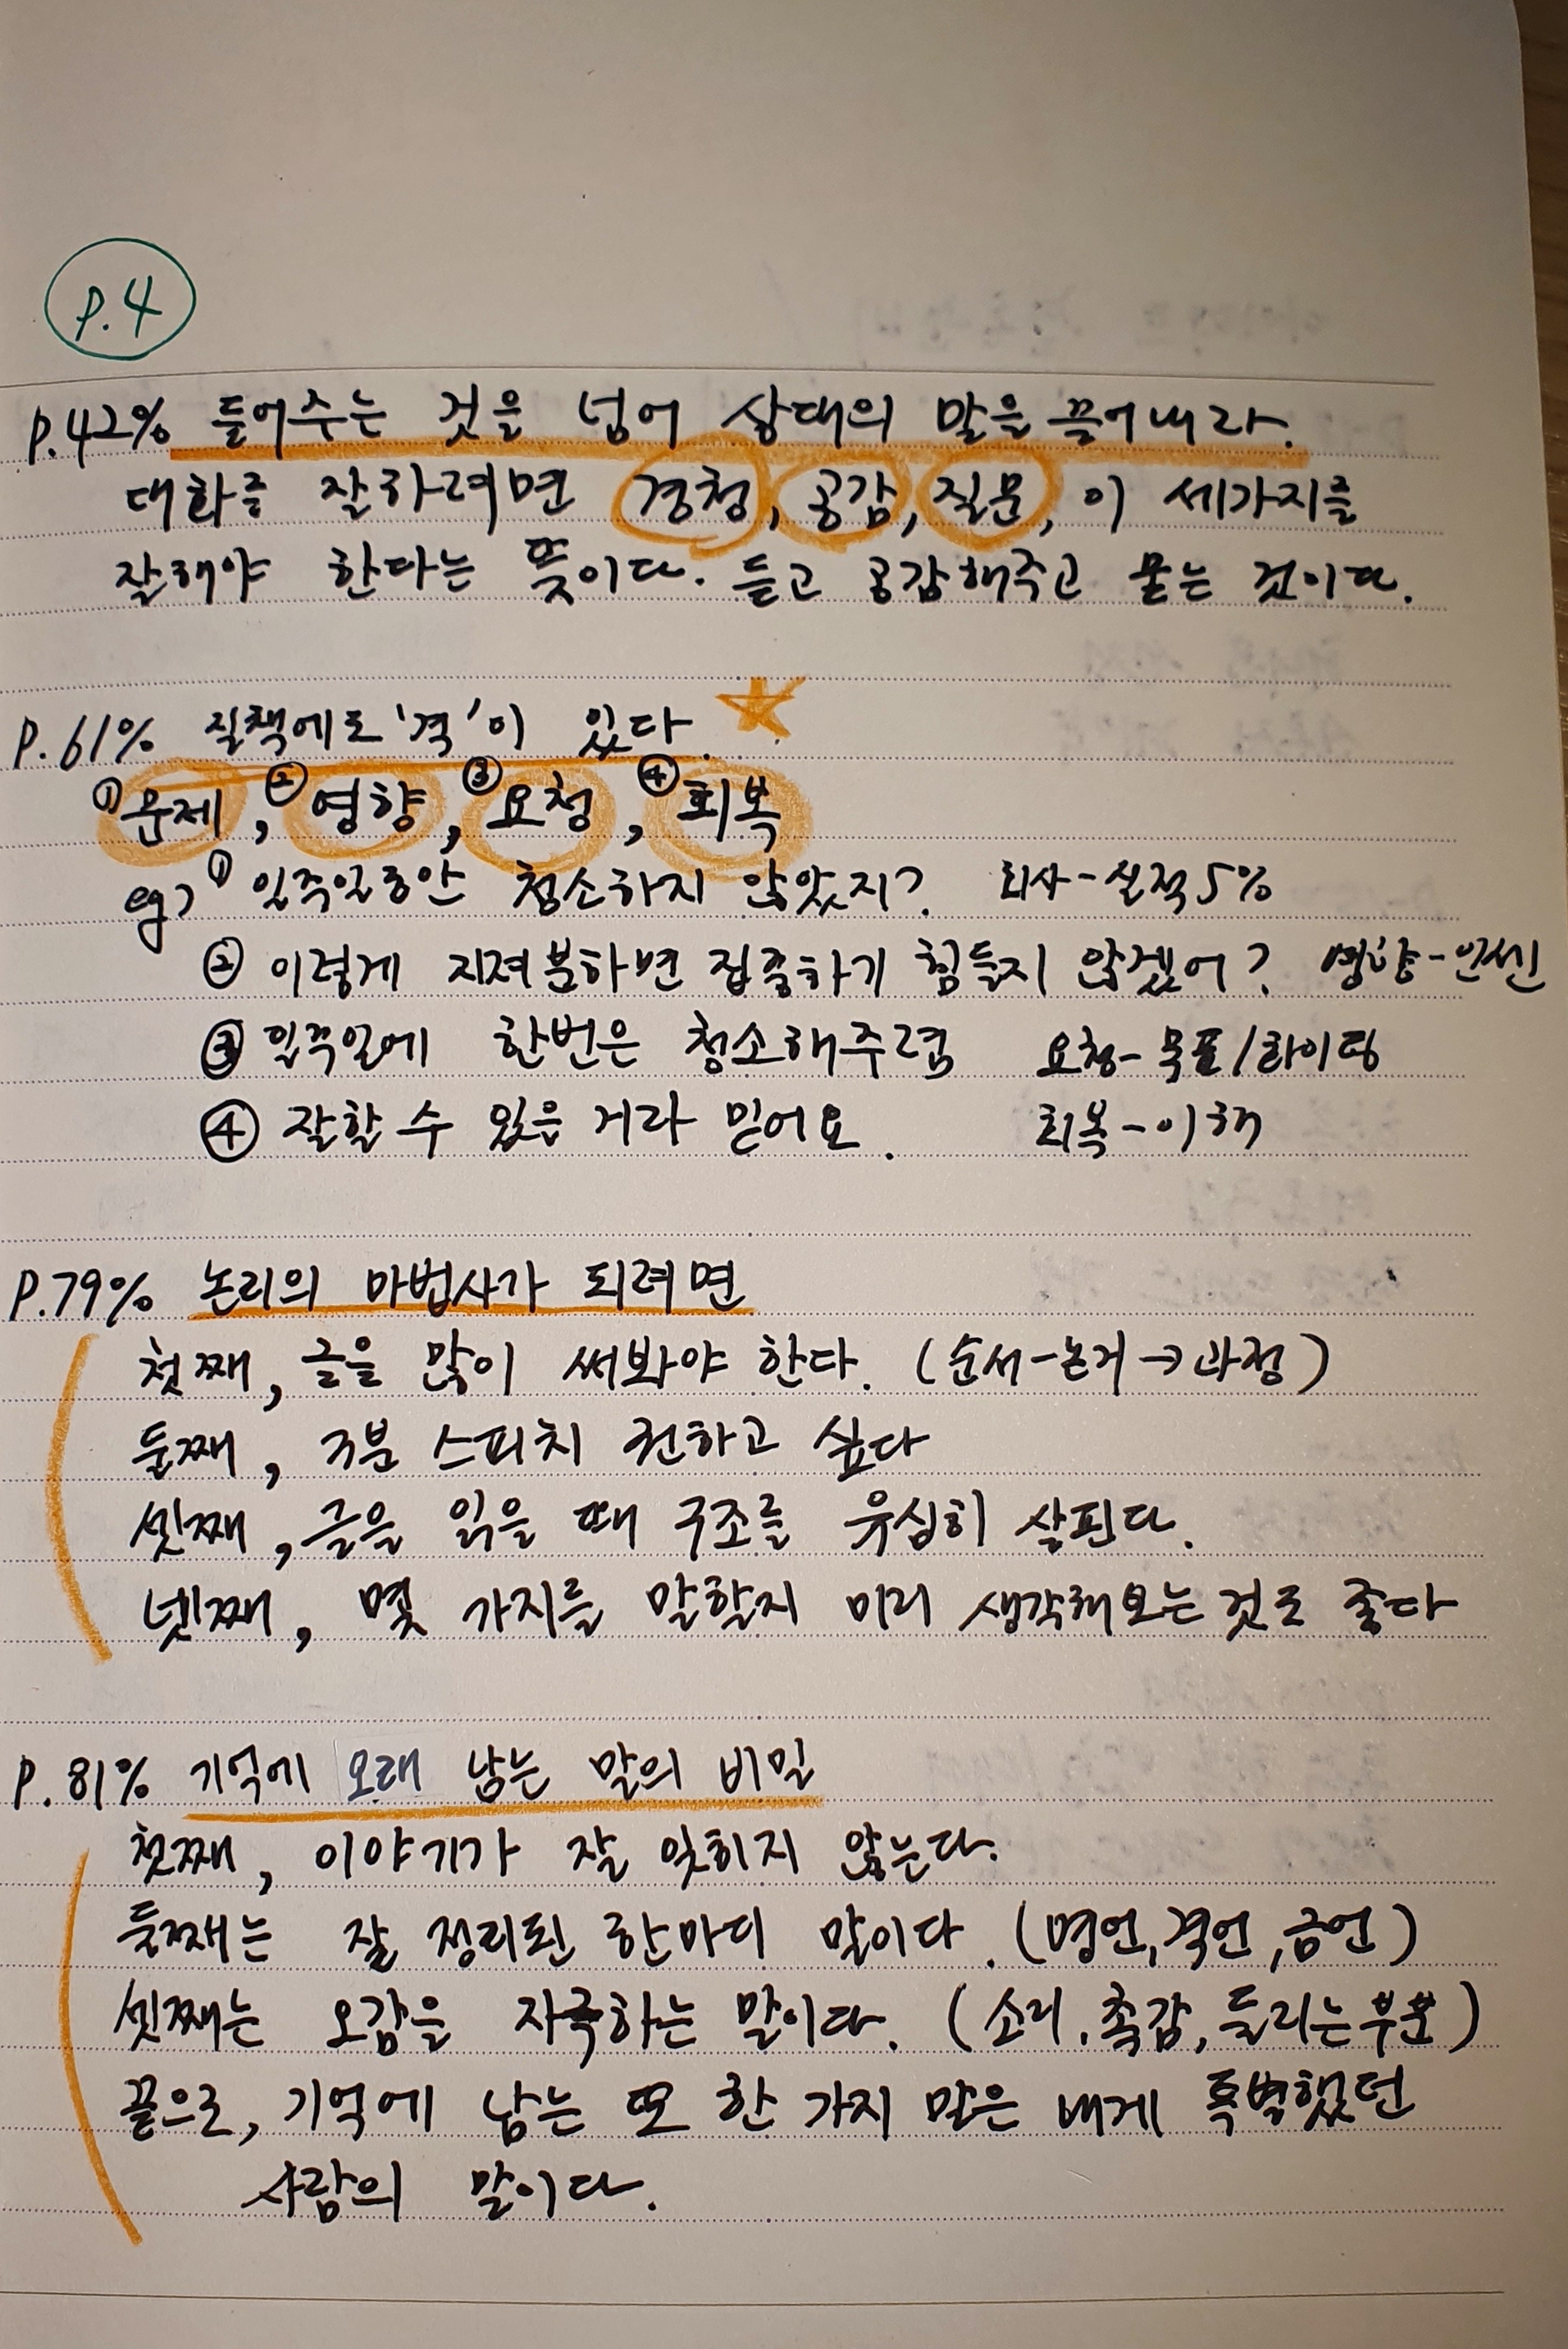 P.4
P.42% 들어주는 것을 넘어 상대의 말을 끌어내라.
대화를 잘하려면 경청, 공감, 질문, 이 세가지를
잘해야 한다는 뜻이다. 듣고 공감해주고 묻는 것이다.
P.61% 질책에도 '격'이 있다.
①문제, ②영향, ③요청, ④회복
eg) ① 일주일동안 청소하지 않았지? 회사-실적5%
② 이렇게 지저분하면 집중하기 힘들지 않겠어? 영향-인센
③ 일주일에 한번은 청소해주렴 요청-목표/화이팅
④ 잘할 수 있을 거라 믿어요. 회복-이해
P.79% 논리의 마법사가 되려면
첫째, 글을 많이 써봐야 한다. (순서-논거→과정)
둘째, 3분 스피치 권하고 싶다
셋째, 글을 읽을 때 구조를 유심히 살핀다.
넷째, 몇 가지를 말할지 미리 생각해보는 것도 좋다
P.81% 기억에 오래 남는 말의 비밀
첫째, 이야기가 잘 잊히지 않는다.
둘째는 잘 정리된 한마디 말이다. (명언, 격언, 금언)
셋째는 오감을 자극하는 말이다. (소리, 촉감, 들리는 부분)
끝으로, 기억에 남는 또 한 가지 말은 내게 특별했던
사람의 말이다.